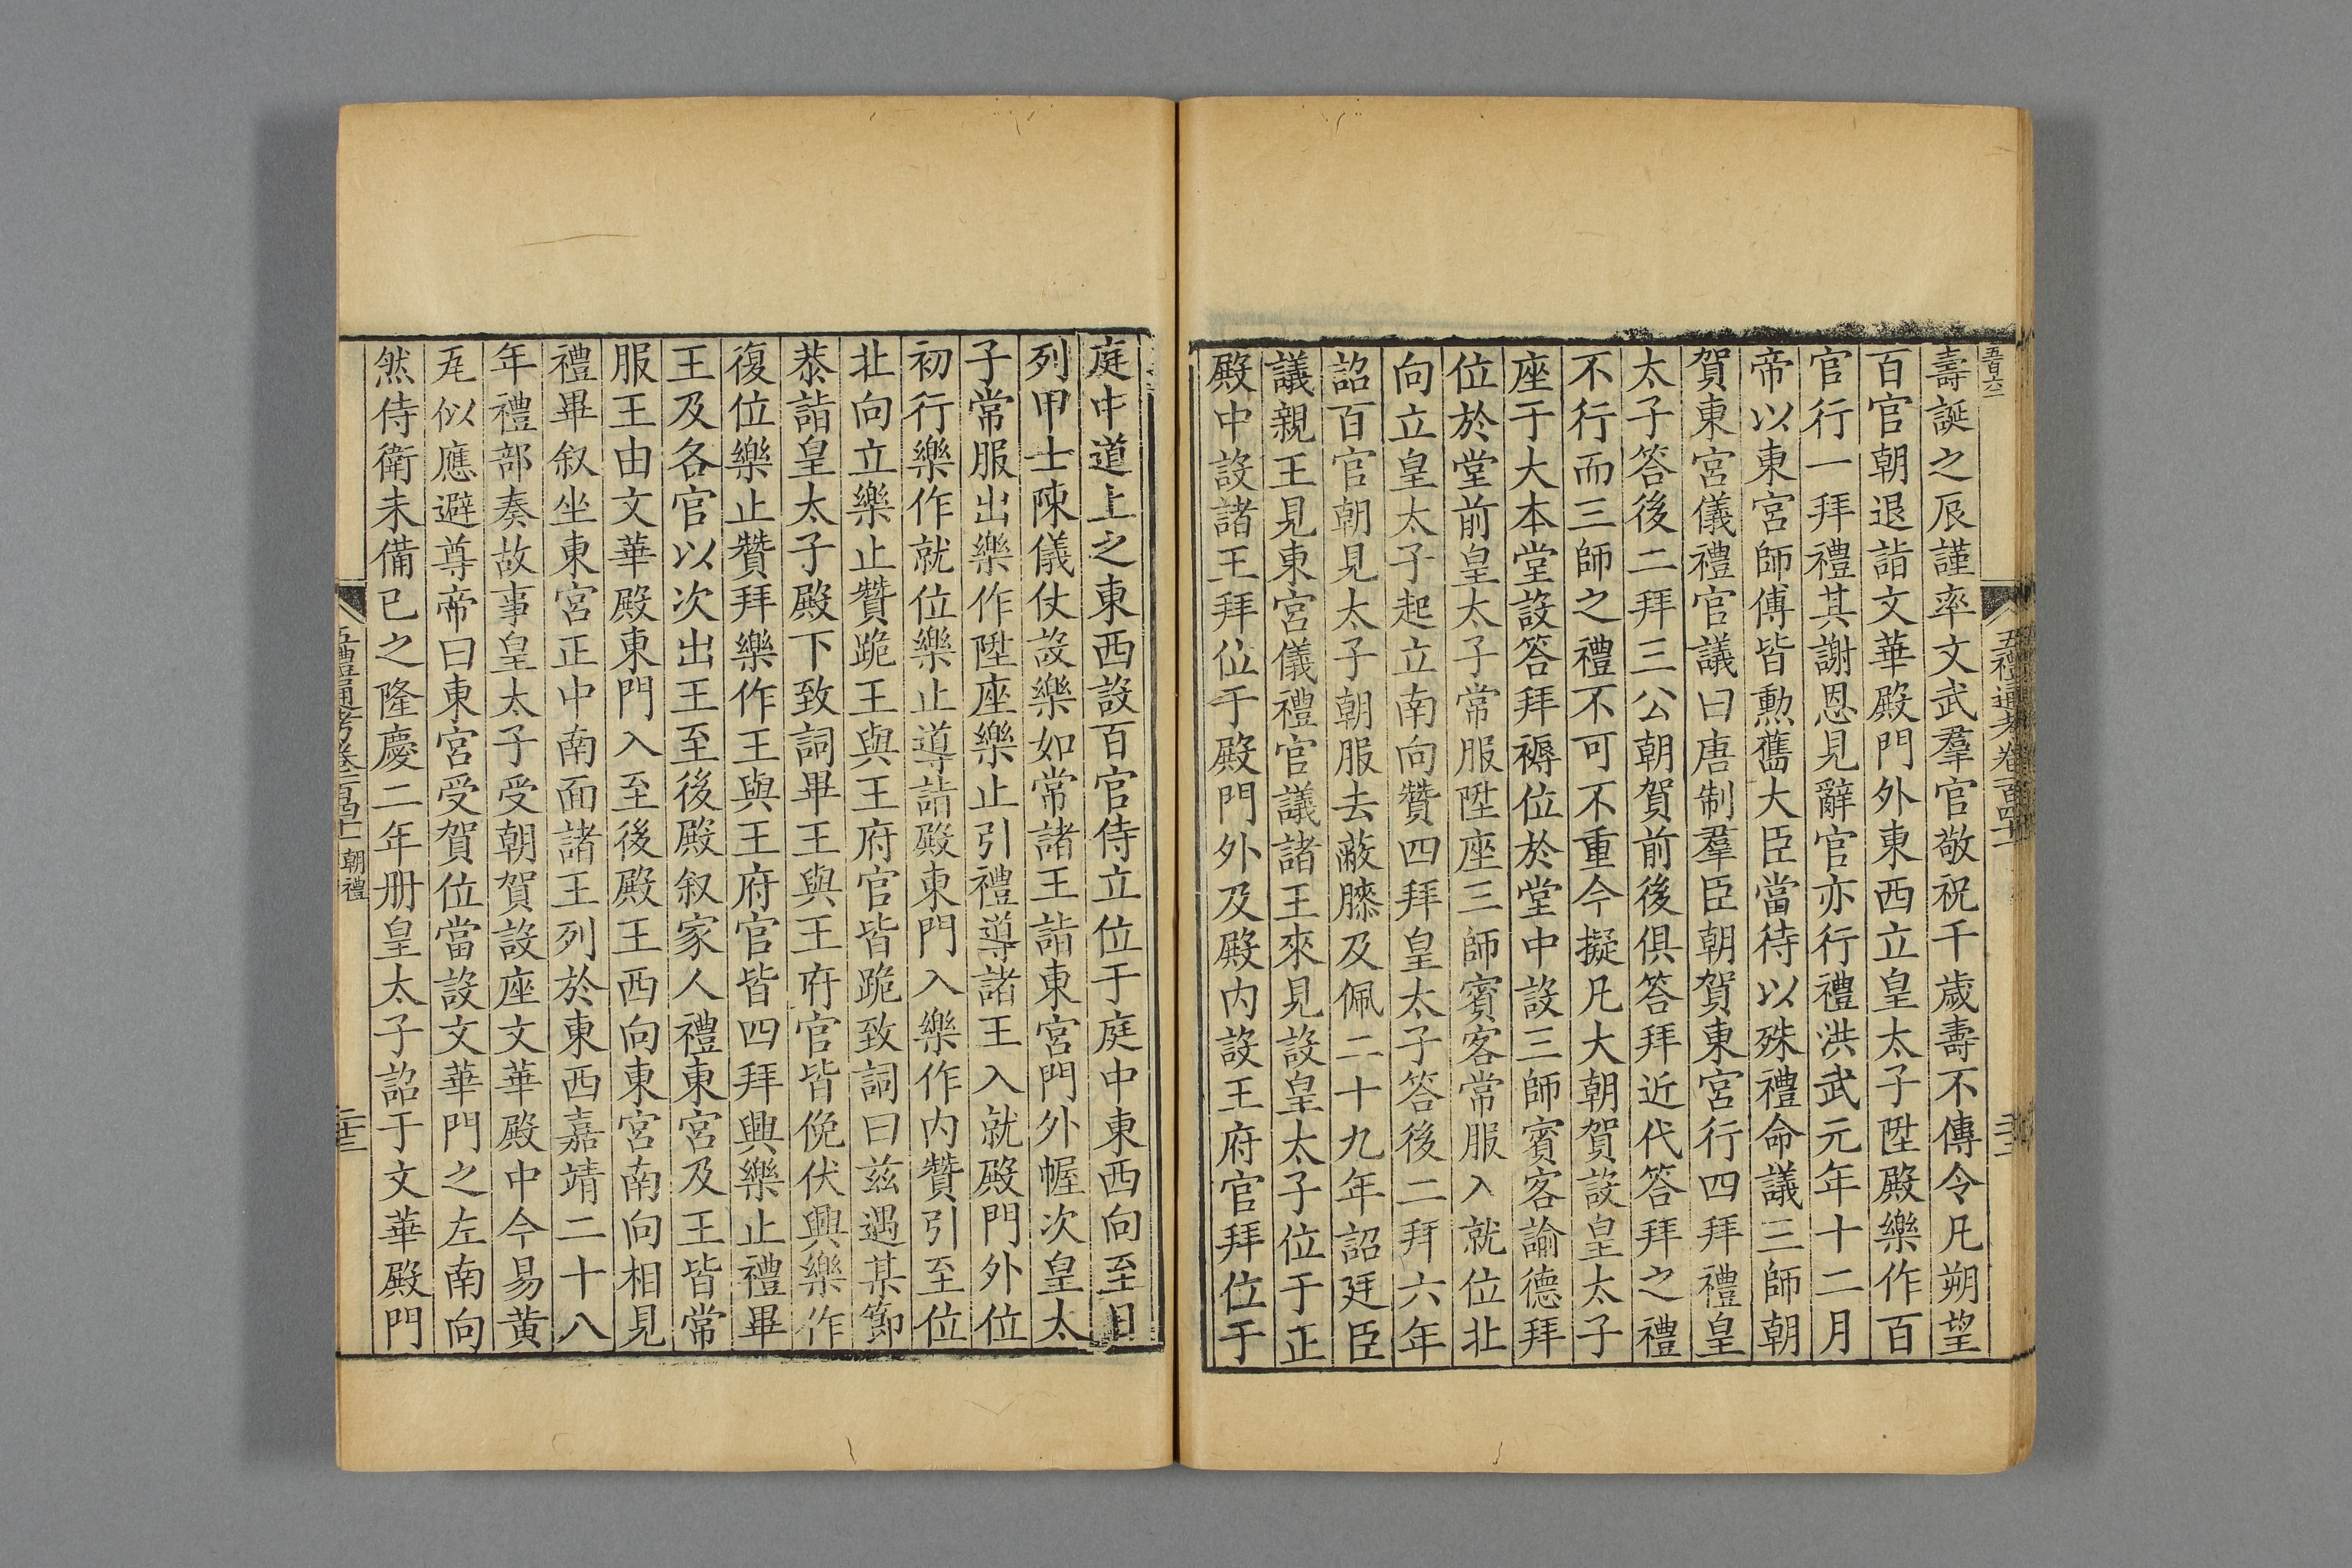 壽誕之辰謹率文武羣官敬祝千歲壽不傳令凡朔望
百官朝退詣文華殿門外東西立皇太子陞殿樂作百
官行一拜禮其謝恩見辭官亦行禮洪武元年十二月
帝以東宮師傅皆勲舊大臣當待以殊禮命議三師朝
賀東宮儀禮官議曰唐制羣臣朝賀東宮行四拜禮皇
太子答後二拜三公朝賀前後俱答拜近代答拜之禮
不行而三師之禮不可不重今擬凡大朝賀設皇太子
座于大本堂設答拜褥位於堂中設三師賓客諭德拜
位於堂前皇太子常服陞座三師賓客常服入就位北
向立皇太子起立南向贊四拜皇太子答後二拜六年
詔百官朝見太子朝服去蔽膝及佩二十九年詔廷臣
議親王見東宮儀禮官議諸王來見設皇太子位于正
殿中設諸王拜位于殿門外及殿内設王府官拜位于
庭中道上之東西設百官侍立位于庭中東西向至日
列甲士陳儀仗設樂如常諸王詣東宮門外幄次皇太
子常服出樂作陞座樂止引禮導諸王入就殿門外位
初行樂作就位樂止導詣殿東門入樂作内贊引至位
北向立樂止贊跪王與王府官皆跪致詞曰兹遇某節
恭詣皇太子殿下致詞畢王與王府官皆俛伏興樂作
復位樂止贊拜樂作王與王府官皆四拜興樂止禮畢
王及各官以次出王至後殿叙家人禮東宮及王皆常
服王由文華殿東門入至後殿王西向東宮南向相見
禮畢叙坐東宮正中南面諸王列於東西嘉靖二十八
年禮部奏故事皇太子受朝賀設座文華殿中今易黃
瓦似應避尊帝曰東宮受賀位當設文華門之左南向
然侍衛未備已之隆慶二年册皇太子詔于文華殿門
五禮通考卷一百四十一 朝禮